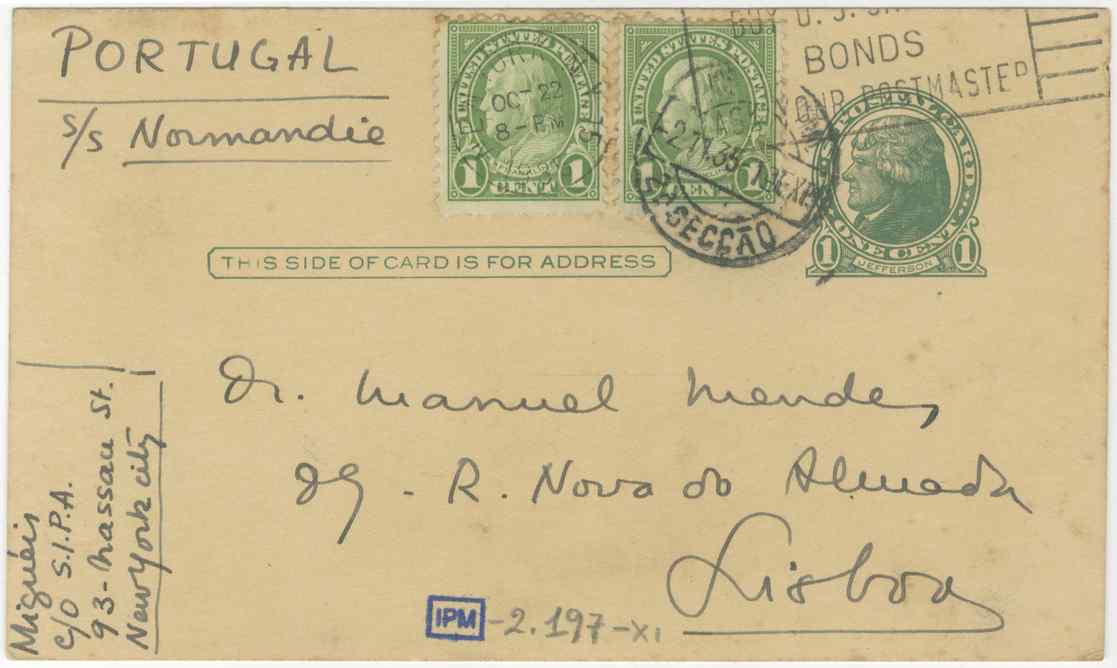 PORTUGAL
s/s Normandie
UNITED STATES POSTAGE
1 CENT 1
OCT 22
8-PM
UNITED STATES POSTAGE
1 CENT 1
BONDS
POSTMASTER
-2.11.35
SECÇÃO
1 ONE CENT 1
JEFFERSON
THIS SIDE OF CARD IS FOR ADDRESS
Dr. Manuel Mendes
89 - R. Nova do Almada
Lisboa
Miguéis
c/o S.I.P.A.
93 - Nassau St.
New York city
IPM - 2.197 - XI